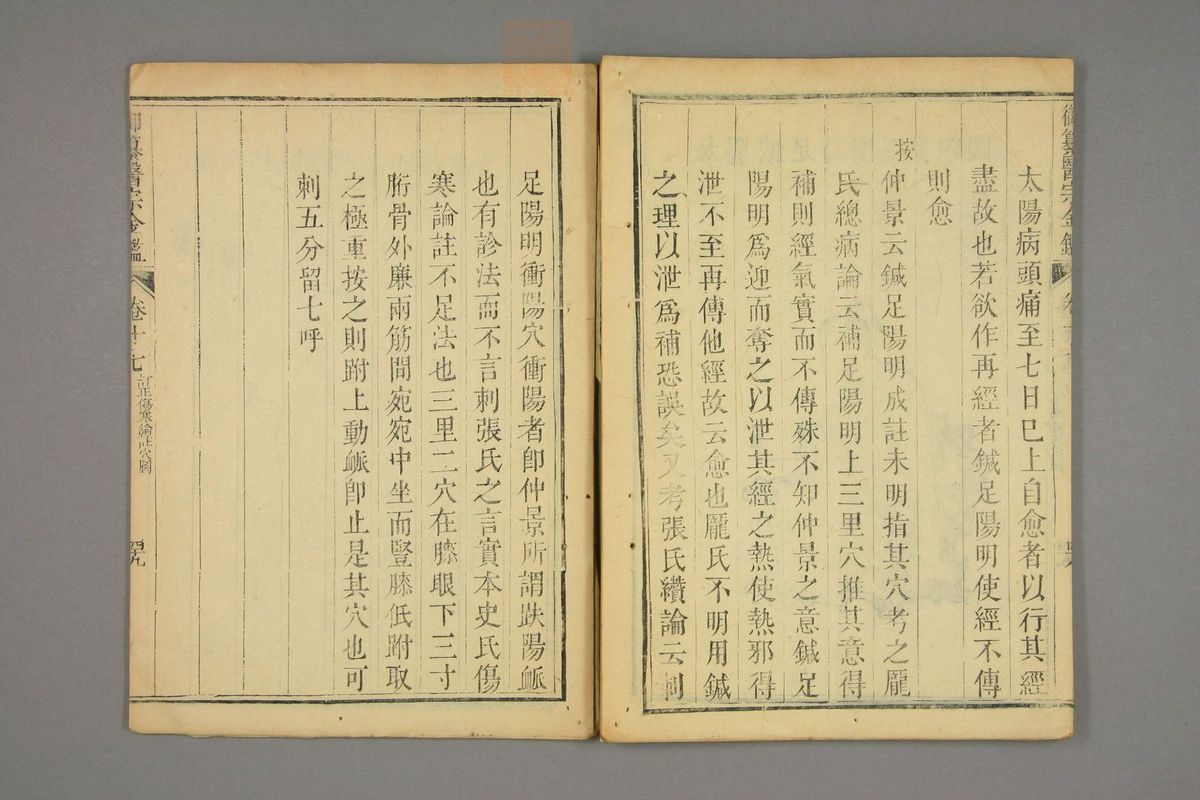 御纂醫宗金鑑
太陽病頭痛至七日巳上自愈者以行其經
盡故也若欲作再經者鍼足陽明使經不傳
則愈
按
仲景云鍼足陽明成註未明指其穴考之龎
氏總病論云補足陽明上三里穴推其意得
補則經氣實而不傳姝不知仲景之意鍼足
陽明爲迎而奪之以泄其經之熱使熱邪得
泄不至再傳他經故云愈也龎氏不明用鍼
之理以泄爲補恐誤矣又考張氏纘論云刺
足陽明衝陽穴衝陽者卽仲景所謂趺陽脈
也有診法而不言刺張氏之言實本史氏傷
寒論註不足法也三里二穴在膝眼下三寸
胻骨外廉兩筋間宛宛中坐而豎膝低跗取
之極重按之則跗上動脈卽止是其穴也可
刺五分留七呼
御纂醫宗金鑑
卷十七
訂正傷寒論註穴圖
四九